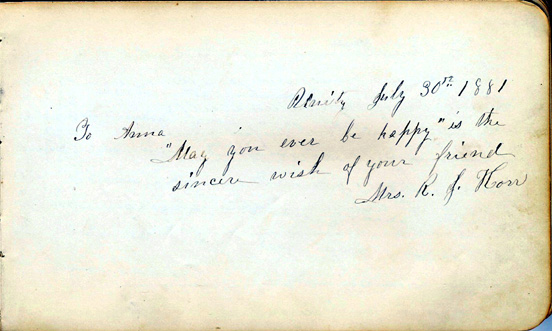 July 30th 1881
To Anna
"May you ever be happy" is the
sincere wish of your friend
Mrs. R. J.